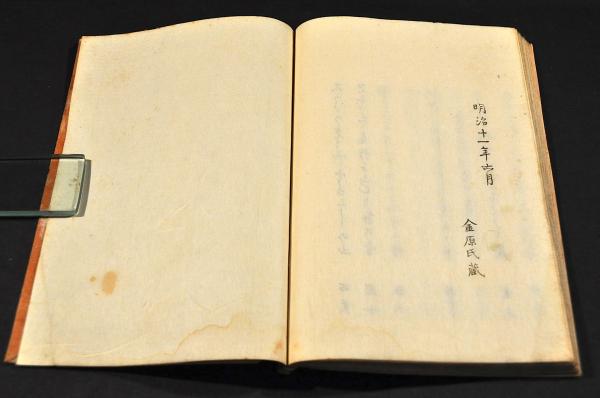 明治十一年六月
金原氏蔵